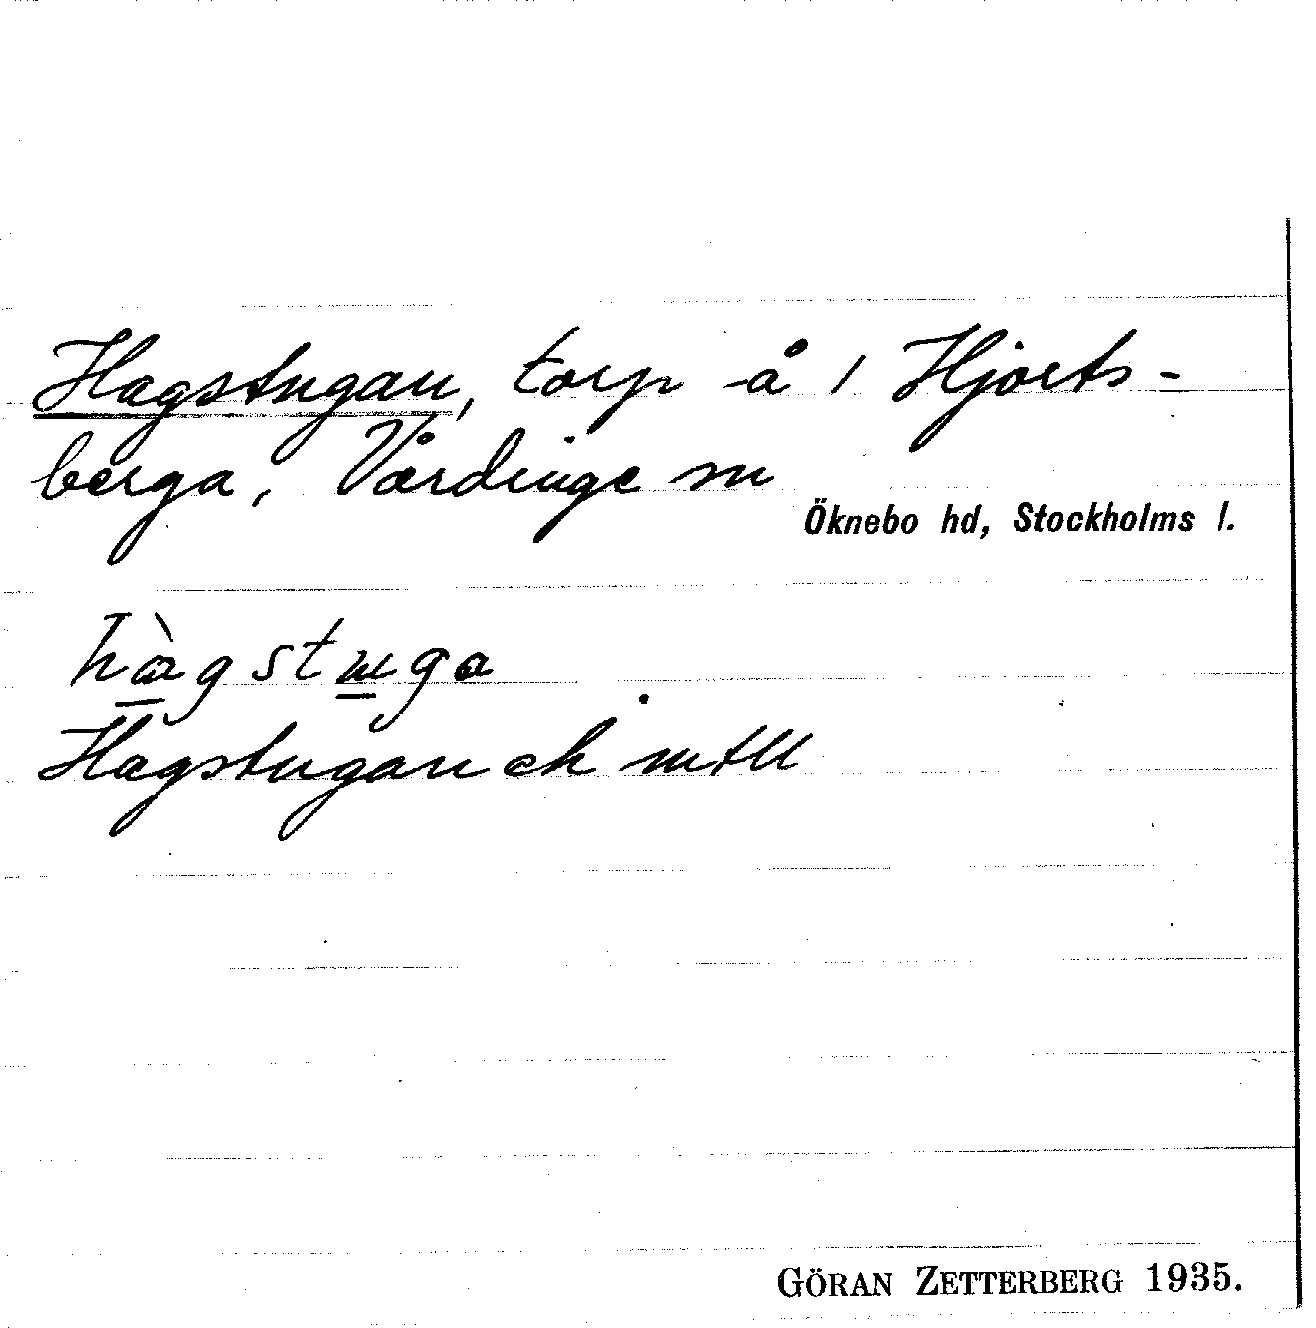 Hagstugan, torp å 1 Hjorts-
berga, Vårdinge sn
Öknebo hd, Stockholms l.
hàgstuga
Hagstugan ek mtll
GÖRAN ZETTERBERG 1935.